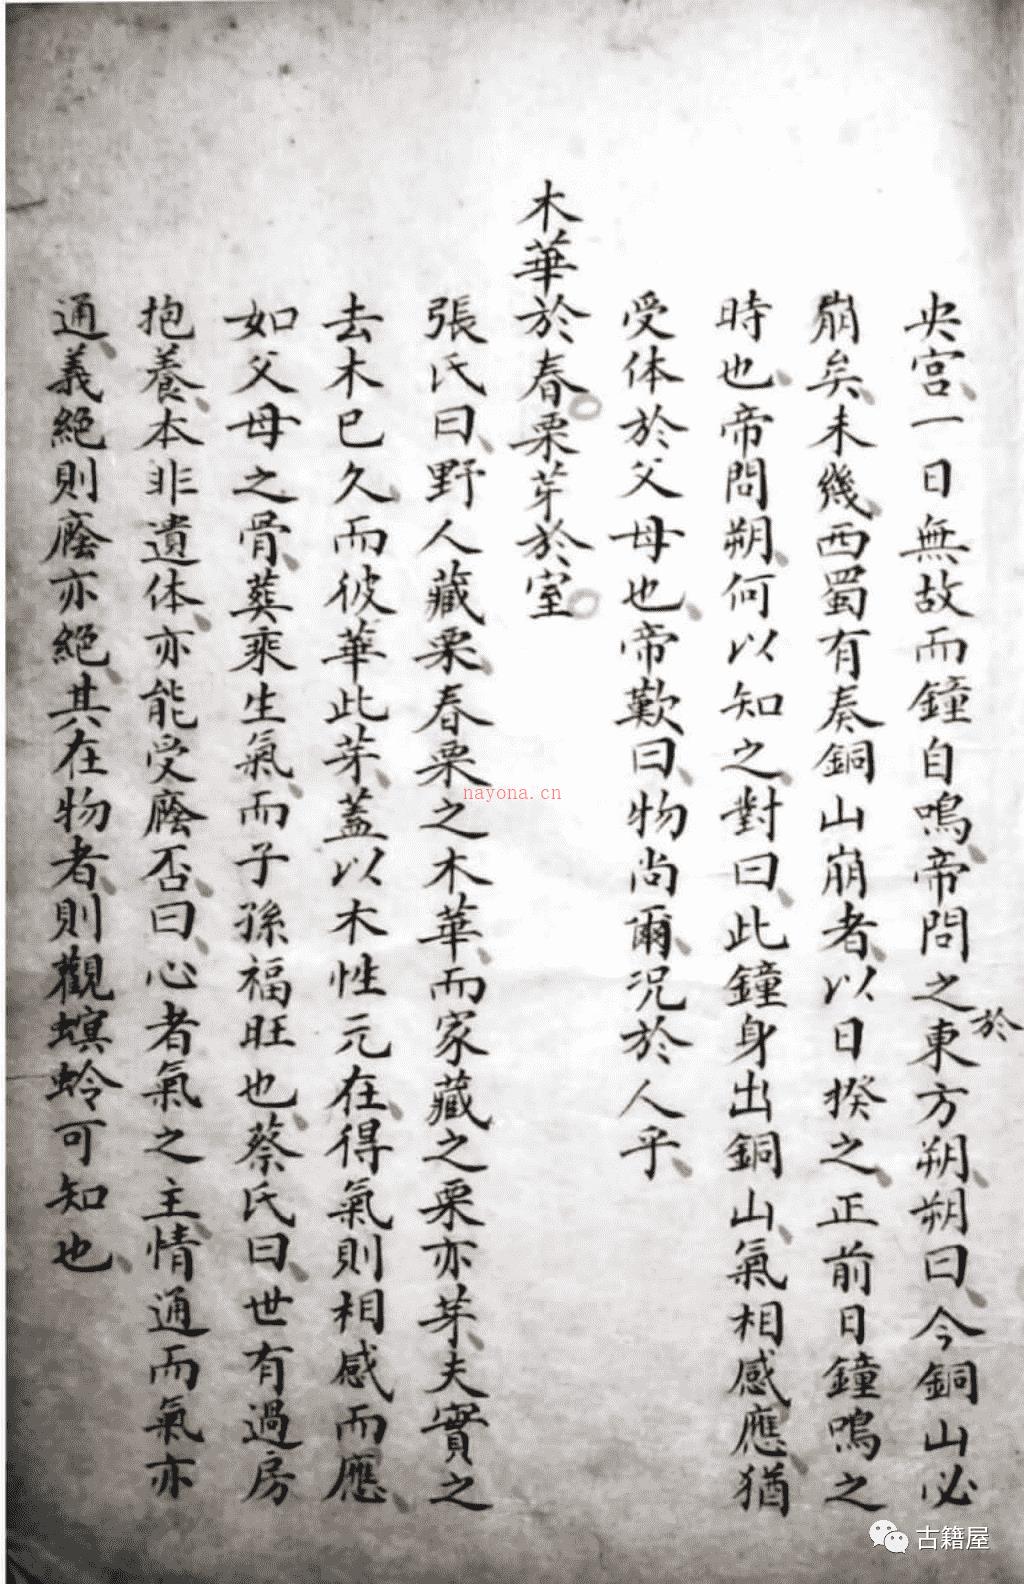 央宮一日無故而鐘自鳴帝問之於東方朔朔曰今銅山必
崩矣未幾西蜀有奏銅山崩者以日揆之正前日鐘鳴之
時也帝問朔何以知之對曰此鐘身出銅山氣相感應猶
受体於父母也帝歎曰物尚爾况於人乎
木華於春栗芽於室
張氏曰野人藏栗春栗之木華而家藏之栗亦芽夫實之
去木已久而彼華此芽蓋以木性元在得氣則相感而應
如父母之骨葬乘生氣而子孫福旺也蔡氏曰世有過房
抱養本非遺体亦能受廕否曰心者氣之主情通而氣亦
通義絕則廕亦絕其在物者則觀螟蛉可知也
nayona.cn
古籍屋